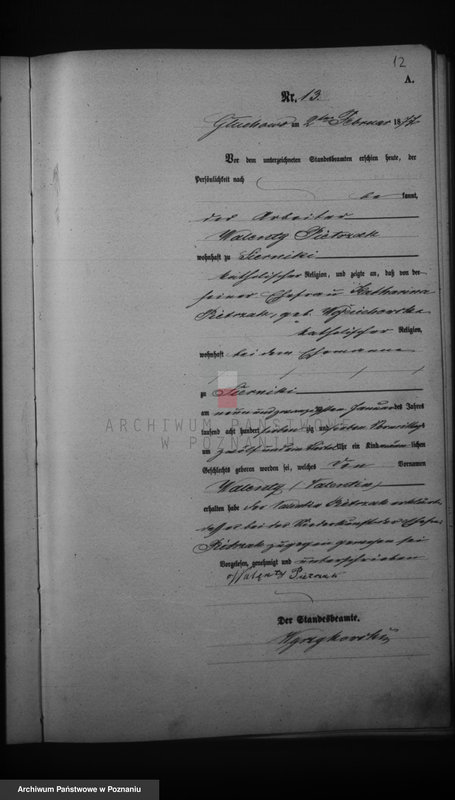 12
A.
Nr. 13.
Gluchowo am 2ten Februar 1877
Vor dem unterzeichneten Standesbeamten erschien heute, der
Persönlichkeit nach
be kannt,
der Arbeiter
Walenty Pietrzak
wohnhaft zu Sierniki
katholischer Religion, und zeigte an, daß von der
seiner Ehefrau Katharina
Pietrzak, geb. Wojciechowska
katholischer Religion,
wohnhaft bei dem Ehemanne
zu Sierniki
am neunundzwanzigsten Januar des Jahres
tausend acht hundert siebenzig und sieben Vormittags
um zwölf und ein Viertel Uhr ein Kind männlichen
Geschlechts geboren worden sei, welches den Vornamen
Walenty (Valentin)
erhalten habe. Der Valentin Pietrzak erklärte,
daß er bei der Niederkunft der Ehefrau
Pietrzak zugegen gewesen sei
Vorgelesen, genehmigt und unterschrieben
Walenty Pietrzak
Der Standesbeamte.
ARCHIWUM PAŃSTWOWE
W POZNANIU
Archiwum Państwowe w Poznaniu